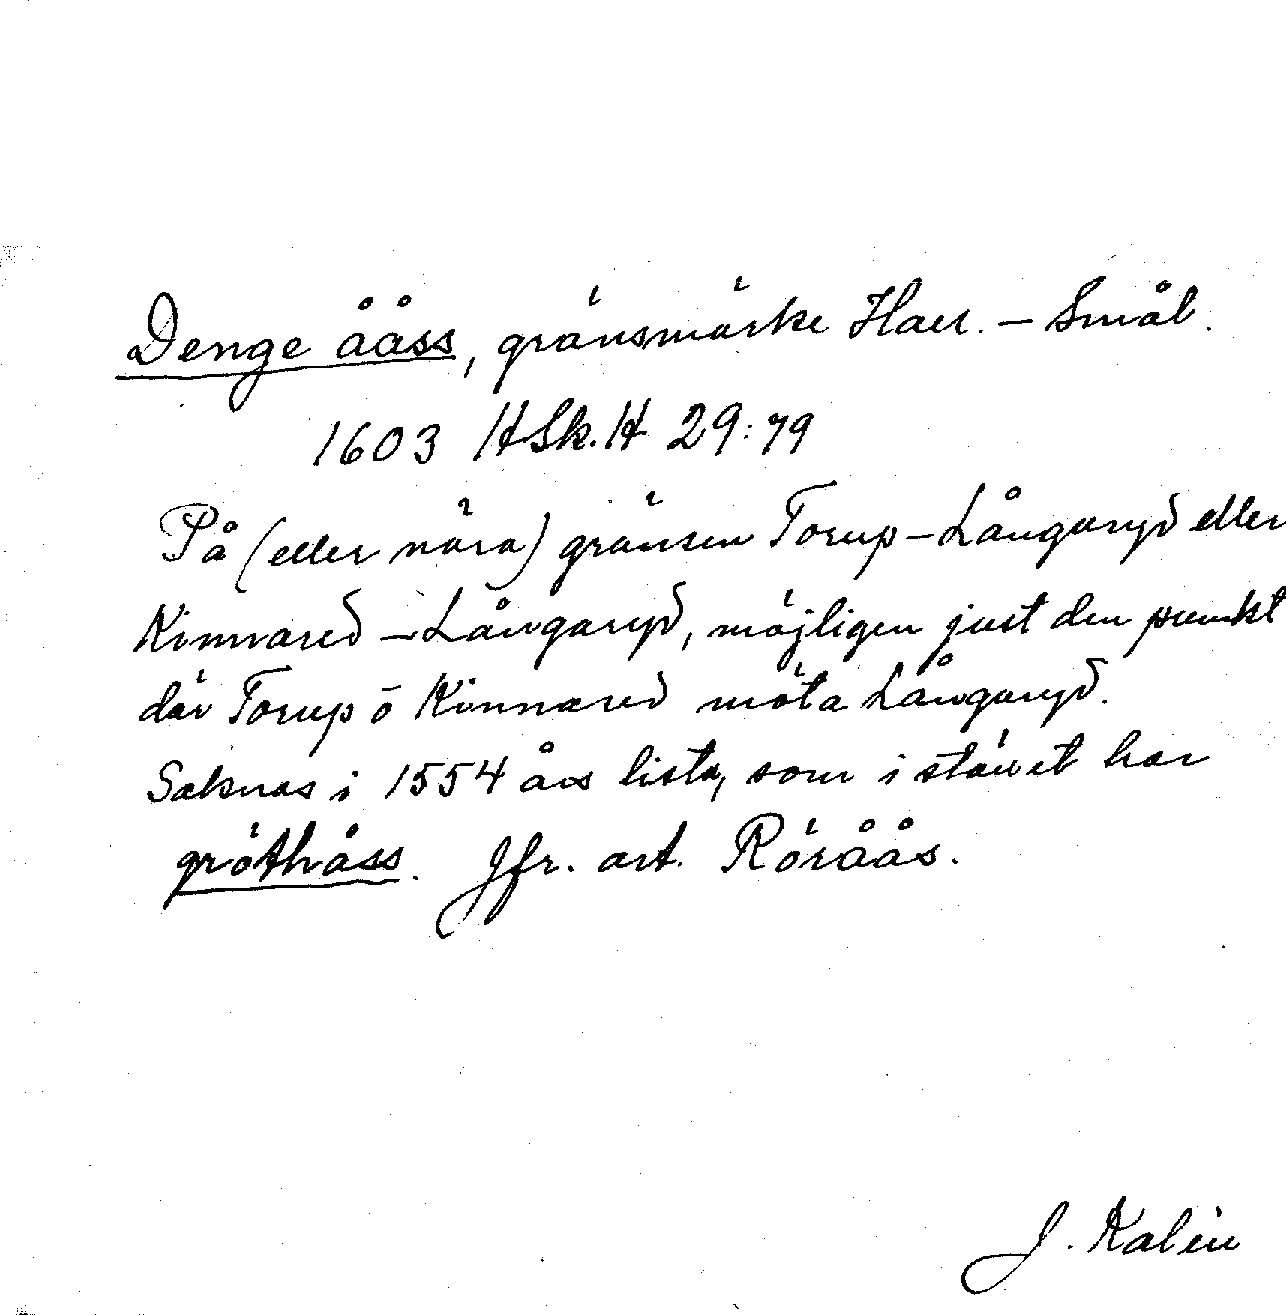 Denge ååss, gränsmärke Hall. – Smål.
1603 HSk.H 29:79
På (eller nära) gränsen Torup – Långaryd eller
Kinnared – Långaryd, möjligen just den punkt
där Torup o Kinnared möta Långaryd.
Saknas i 1554 års lista, som i stället har
gröthåss. Jfr. art. Röråås.
J. Kalén